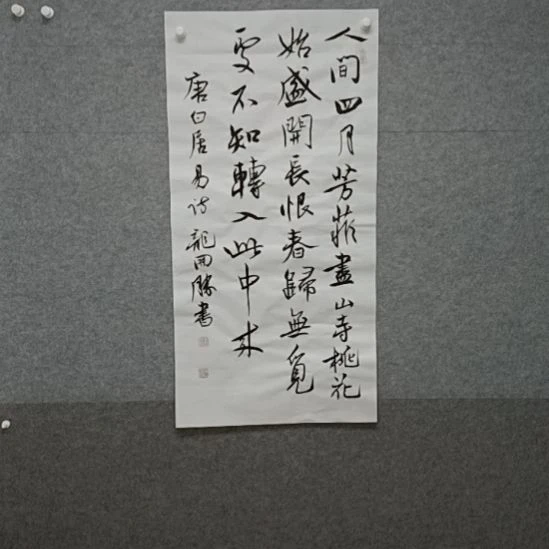 人間四月芳菲盡山寺桃花
始盛開長恨春歸無覓
處不知轉入此中來
唐白居易詩 龍開勝書